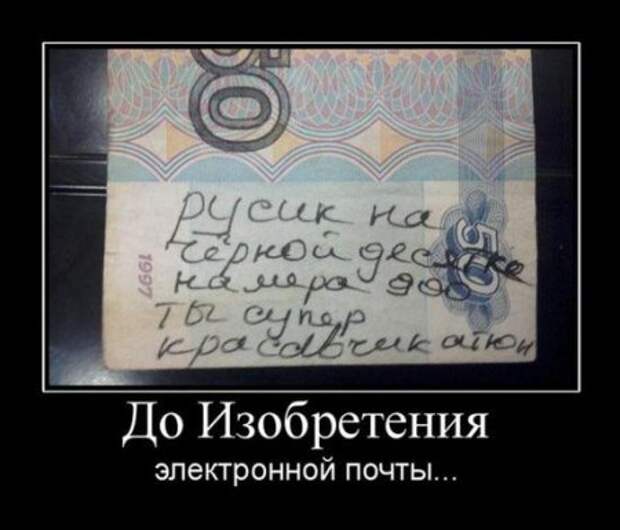 50
1997
русик на
чёрной десятке
50
намера 900
ты супер
красавчик
До Изобретения
электронной почты...